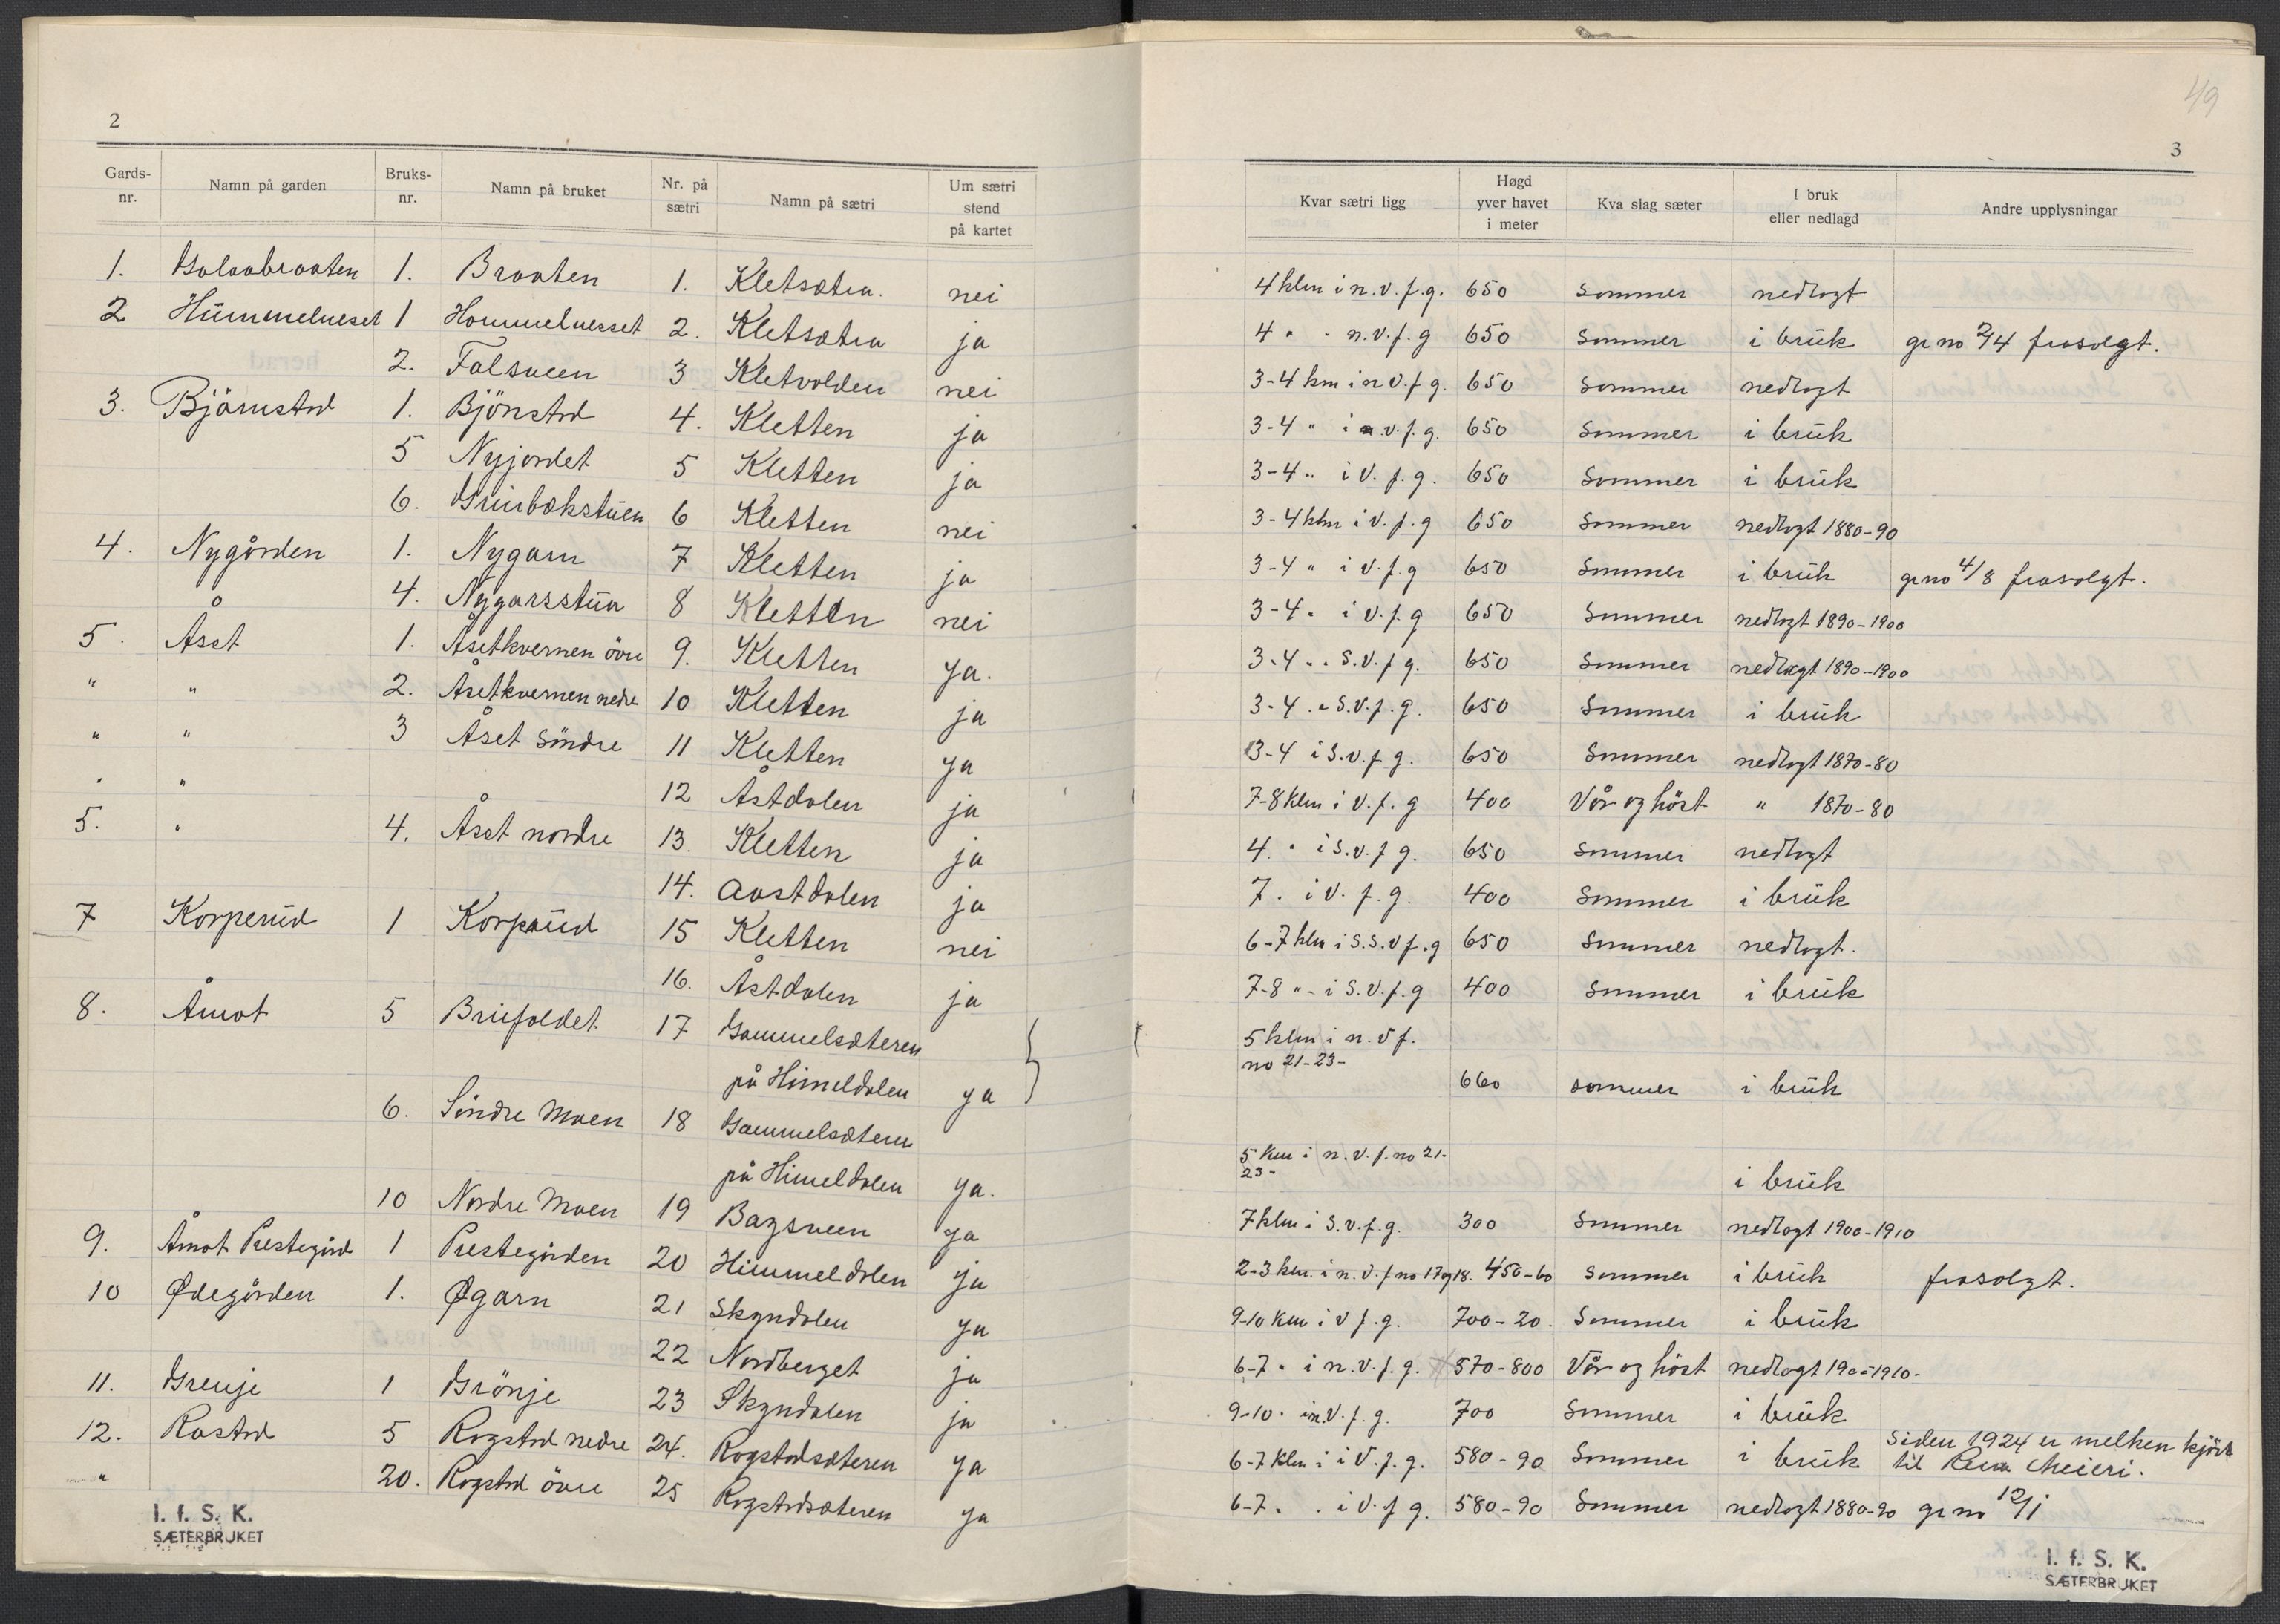 2
Gards-nr. Namn på garden Bruks-nr. Namn på bruket Nr. på sætri Namn på sætri Um sætri stend på kartet
1. 1. Braaten 1. Kletsætra. nei
2 Hümmelneset 1 Hommelnesset 2. Kletsætra ja
2. Falsveen 3 Kletvolden nei
3. Björnstad 1. Bjönstad 4. Kletten ja
5 Nyjordet 5 Kletten ja
6. 6 Kletten nei
4. Nygården 1. Nygarn 7 Kletten ja
4. Nygarsstüa 8 Kletten nei
5. Åset 1. Åsetkvernen övre 9. Kletten ja.
" " 2. Åsetkvernen nedre 10 Kletten ja
" " 3 Åset Söndre 11 Kletten ja
" " 12 Åstdalen ja
5. " 4. Åset nordre 13. Kletten ja
14. Aastdalen ja
7 Korperüd 1 Korperüd 15 Kletten nei
16. Åstdalen ja
8. Åmot 5 17 Gammelsæteren
på Himeldalen ja
6. Söndre Moen 18 Gammelsæteren
på Himeldalen ja.
10 Nordre Moen 19 Bagsveen ja
9. Åmot Prestegård 1 Prestegården 20 Himmeldalen ja
10 Ødegården 1. Øgarn 21 Skyndalen ja
22 Nordberget ja
11. Grenje 1 Grönje 23 Skyndalen ja
12. Rastad 5 Rogstad nedre 24. Rogstadsæteren ja
" 20. Rogstad övre 25 Rogstadsæteren ja
I. f. S. K.
SÆTERBRUKET
49
3
Kvar sætri ligg Høgd yver havet i meter Kva slag sæter I bruk eller nedlagd Andre upplysningar
4 klm i n.v.f.g. 650 Sommer nedlagt
4 " - n.v.f.g 650 Sommer i brük gr no 2/4 frasolgt.
3-4 km i n v.f.g. 650 Sommer nedlagt
3-4 " i n.v.f.g. 650 Sommer i brük
3-4 " i v.f.g. 650 Sommer i brük
3-4 klm i v.f.g 650 Sommer nedlagt 1880-90
3-4 " i v.f.g 650 Sommer i brük gr no 4/8 frasolgt.
3-4 " i v.f.g 650 Sommer nedlagt 1890-1900
3-4 " . S.v.f.g. 650 Sommer nedlagt 1890-1900
3-4 . " S.v.f.g. 650 Sommer i brük
3-4 i S.v.f.g. 650 Sommer nedlagt 1870-80
7-8 Klm i v.f.g 400 Vår og höst " 1870-80
4. " i S.v.f.g. 650 Sommer nedlagt
7. i v.f.g. 400 Sommer i brük
6-7 klm i S.S.v.f.g 650 Sommer nedlagt.
7-8 " - i S.v.f.g 400 Sommer i brük
5 klm i n.v f.
no 21-23-
660 sommer i brük
5 Km i n.v.f. no 21-
23- i brük
7 klm i S.v.f.g. 300 Sommer nedlagt 1900-1910
2-3 klm. i n.v.f no 17 og 18. 450-60 Sommer i brük frasolgt.
9-10 Km i v f.g. 700-20. Sommer i brük
6-7 " i n.v.f.g. 570-800 Vår og höst nedlagt 1900-1910-
9-10 . i n.v.f.g. 700 Sommer i brük
6-7 Klm i i v.f.g. 580-90 Sommer i brük Siden 1924 er melken kjört
til Rena Meieri.
6-7 . . i v.f g. 580-90 Sommer nedlagt 1880-90 gr no 12/1
I. f. S. K.
SÆTERBRUKET